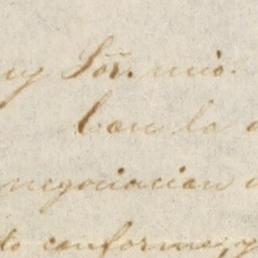 uy Sor. mio.
Con la
negociacion
to conforme, y